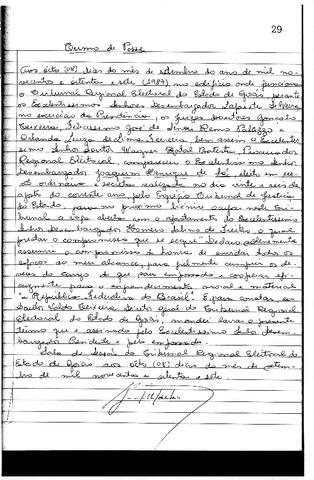 29
Termo de Posse
Aos oito (08) dias do mês de setembro do ano de mil no-
vecentos e oitenta e sete (1987), no edifício onde funciona
o Tribunal Regional Eleitoral do Estado de Goiás, perante
os Excelentíssimos Senhores Desembargador Lafaiete Silveira
no exercício da Presidência, os juízes Doutores Gonçalo
Teixeira, José de Jesus
Orlanda Luíza de Lima Ferreira, bem assim o Excelentís-
simo Senhor Doutor Wagner Natal Batista, Procurador
Regional Eleitoral, compareceu o Excelentíssimo Senhor
Desembargador Joaquim Henrique de Sá, eleito em ses-
são ordinária e secreta realizada no dia vinte e seis de
agosto do corrente ano, pelo Egrégio Tribunal de Justiça
do Estado, para, no próximo biênio ocupar neste Tri-
bunal a vaga aberta com o afastamento do Excelentíssimo
Senhor Desembargador Homero Sabino de Freitas, o qual
prestou o compromisso que se segue: "Declaro solenemente
assumir o compromisso de honra de envidar todos os
esforços ao meu alcance, para fielmente cumprir os de-
veres do cargo de que sou empossado e cooperar efi-
cazmente para o engrandecimento moral e material
da República Federativa do Brasil". E, para constar, eu
Valdo Teixeira, Diretor Geral do Tribunal Regional
Eleitoral do Estado de Goiás, mandei lavrar o presente
termo que é assinado pelo Excelentíssimo Senhor Desem-
bargador Presidente e pelo empossado.
Sala de Sessões do Tribunal Regional Eleitoral do
Estado de Goiás, aos oito (08) dias do mês de setem-
bro de mil novecentos e oitenta e sete.